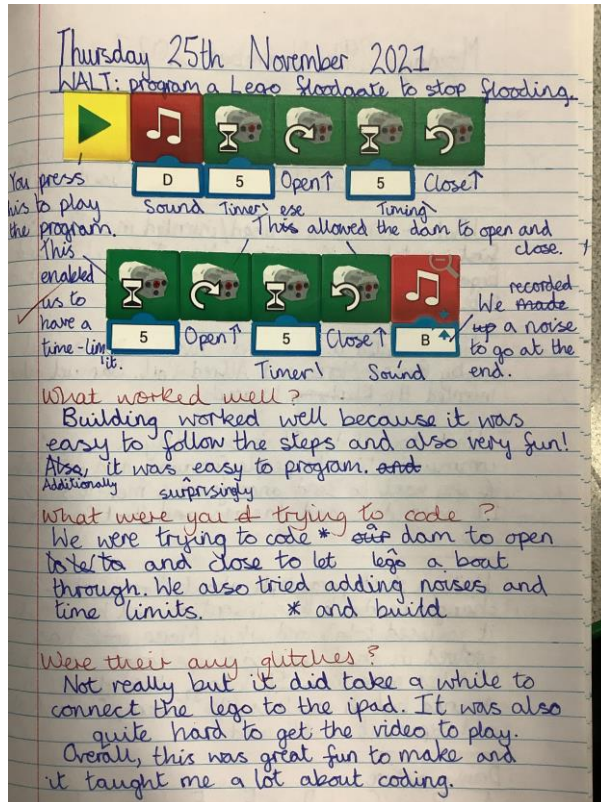 Thursday 25th November 2021
WALT: program a Lego floodgate to stop flooding.
D
5
5
Open↑
Close↑
Sound
Timer\
ese
Timing\
You press
this to play
the program.
This allowed the dam to open and
close.
This
enabled
us to
have a
time-lim
it.
5
Open↑
5
Close↑
B
Timer\
Sound
We made
up recorded a noise
to go at the
end.
What worked well?
Building worked well because it was
easy to follow the steps and also very fun!
Also, it was easy to program. and
Additionally surprisingly
What were you trying to code?
We were trying to code * our dam to open
and close to let lego a boat
through. We also tried adding noises and
time limits. * and build
Were their any glitches?
Not really but it did take a while to
connect the lego to the ipad. It was also
quite hard to get the video to play.
Overall, this was great fun to make and
it taught me a lot about coding.